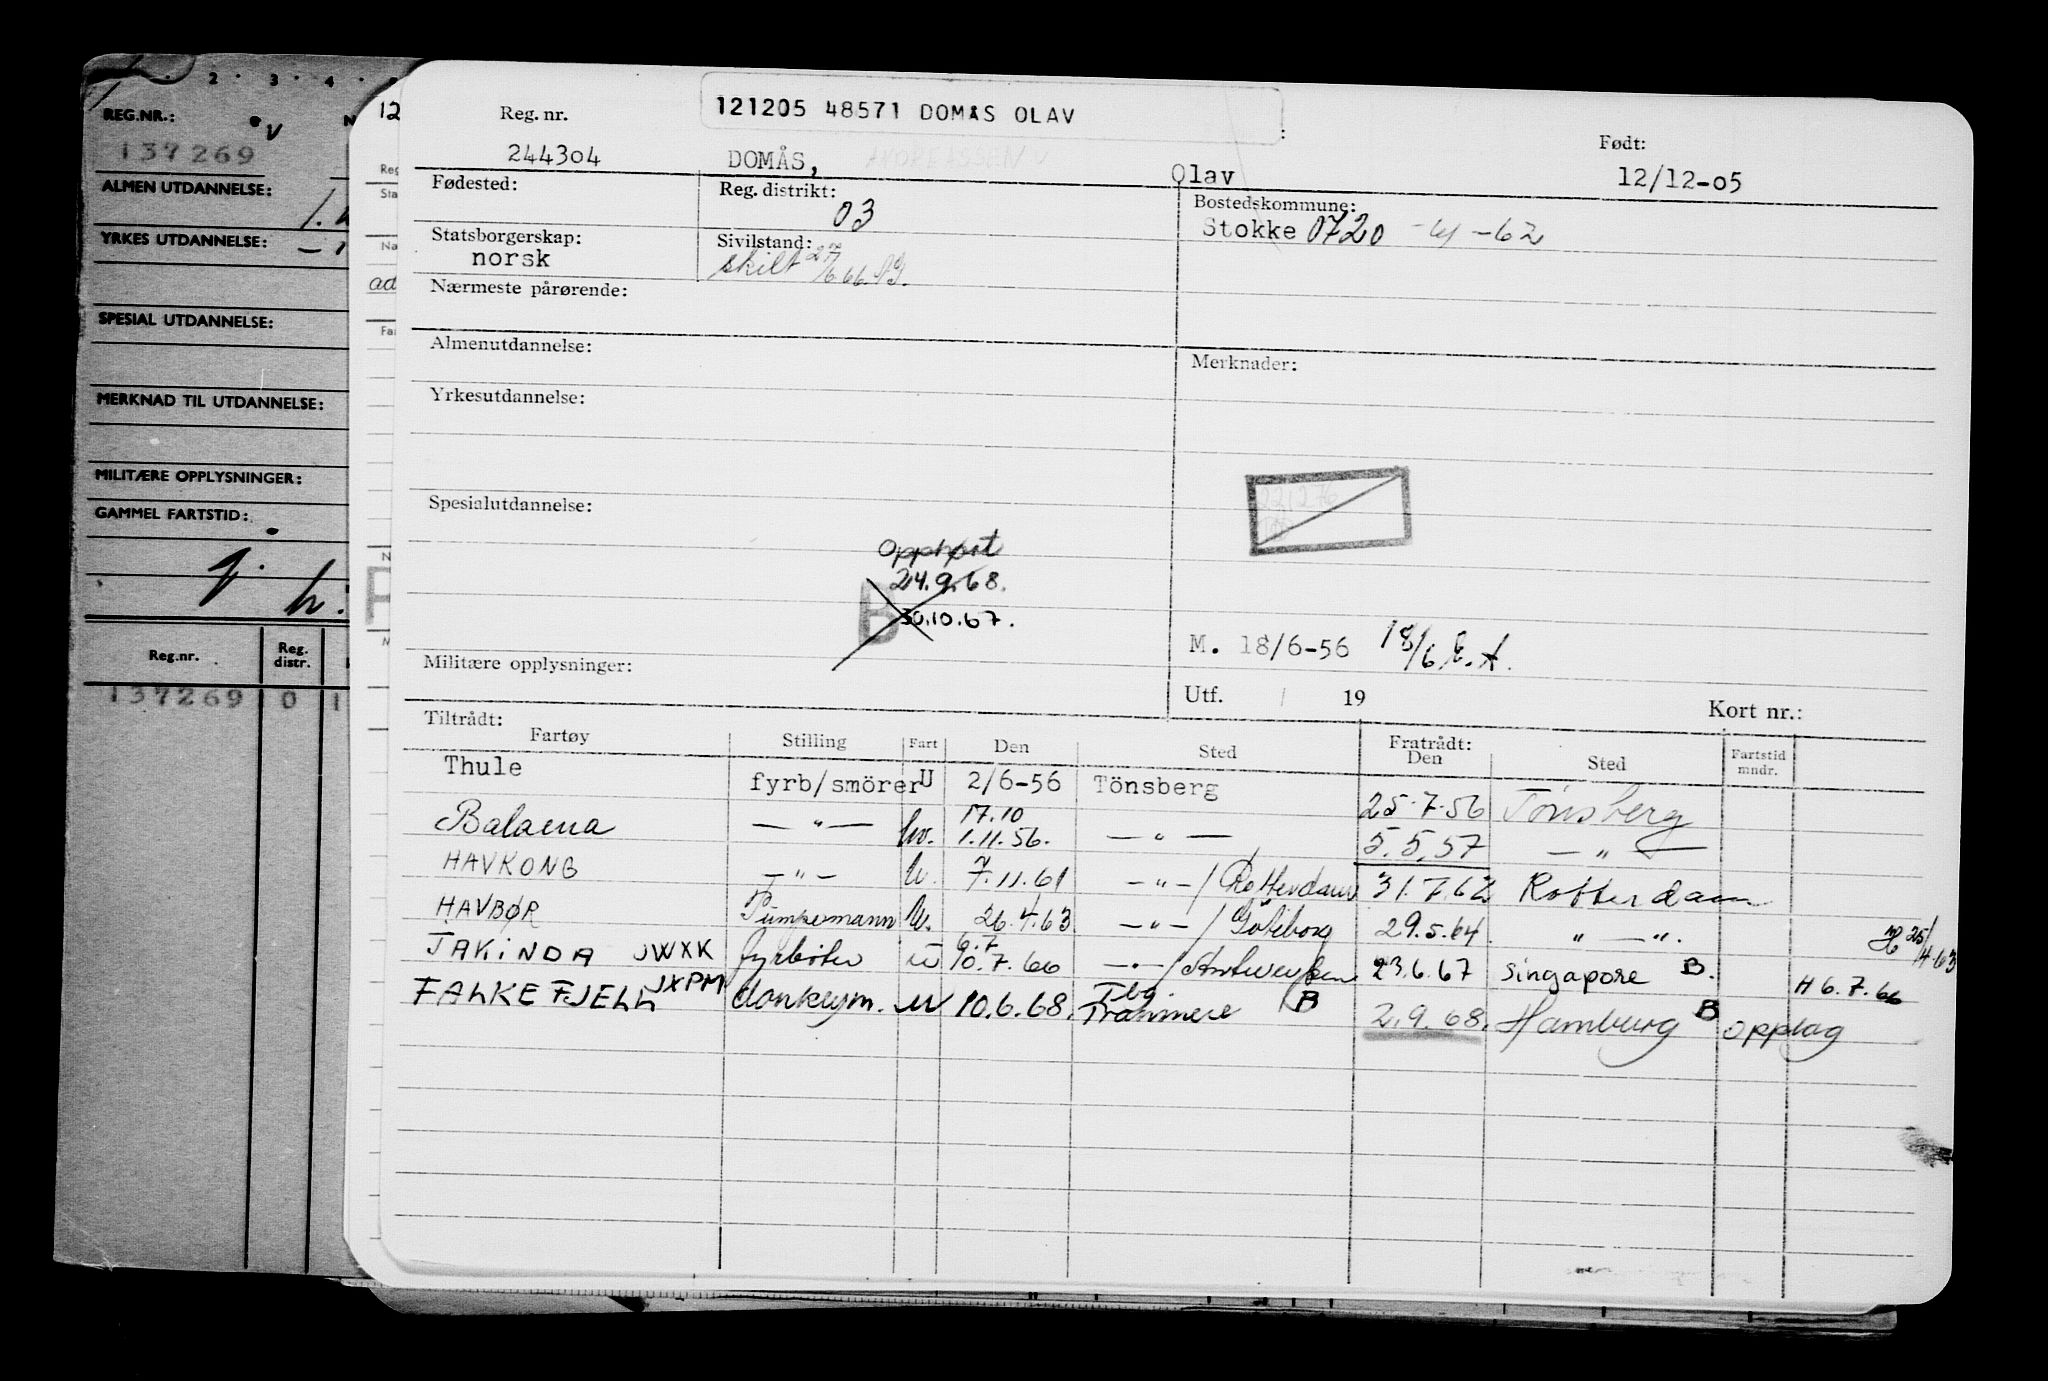 2 · 3 · 4
REG.NR.:
137269
ALMEN UTDANNELSE:
YRKES UTDANNELSE:
SPESIAL UTDANNELSE:
MERKNAD TIL UTDANNELSE:
MILITÆRE OPPLYSNINGER:
GAMMEL FARTSTID:
Reg.nr. Reg. distr.
137269 0 1
12
121205 48571 DOMAS OLAV
Reg. nr. Født:
244304 DOMÅS, Olav 12/12-05
Fødested: Reg. distrikt: Bostedskommune:
03 Stokke 0720 -62
Statsborgerskap: Sivilstand:
norsk skilt 27/6.66.
Nærmeste pårørende:
Almenutdannelse: Merknader:
Yrkesutdannelse:
Spesialutdannelse:
Opphørt
24.9.68.
B 30.10.67.
M. 18/6-56 18/6 E.A.
Militære opplysninger:
Utf. / 19 Kort nr.:
Tiltrådt: Fratrådt:
Fartøy Stilling Fart Den Sted Den Sted Fartstid mndr.
Thule fyrb/smörer U 2/6-56 Tönsberg 25.7.56 Tönsberg
Balaena — " — hv. 17.10 1.11.56. — " — 5.5.57 — " —
HAVKONG — " — U. 7.11.61 — " — / Rotterdam 31.7.62 Rotterdam
HAVBØR Pumpemann U. 26.4.63 — " — / Göteborg 29.5.64. " — ". H 25/4 63
TAKINDA JWXK fyrbøter U 6.7 10.7.66 — " — / Antwerpen 23.6.67 Singapore B. H 6.7.66
FALKEFJELL JXPM donkeym. U 10.6.68. Tbg. Tranmere B 2.9.68. Hamburg B opplag